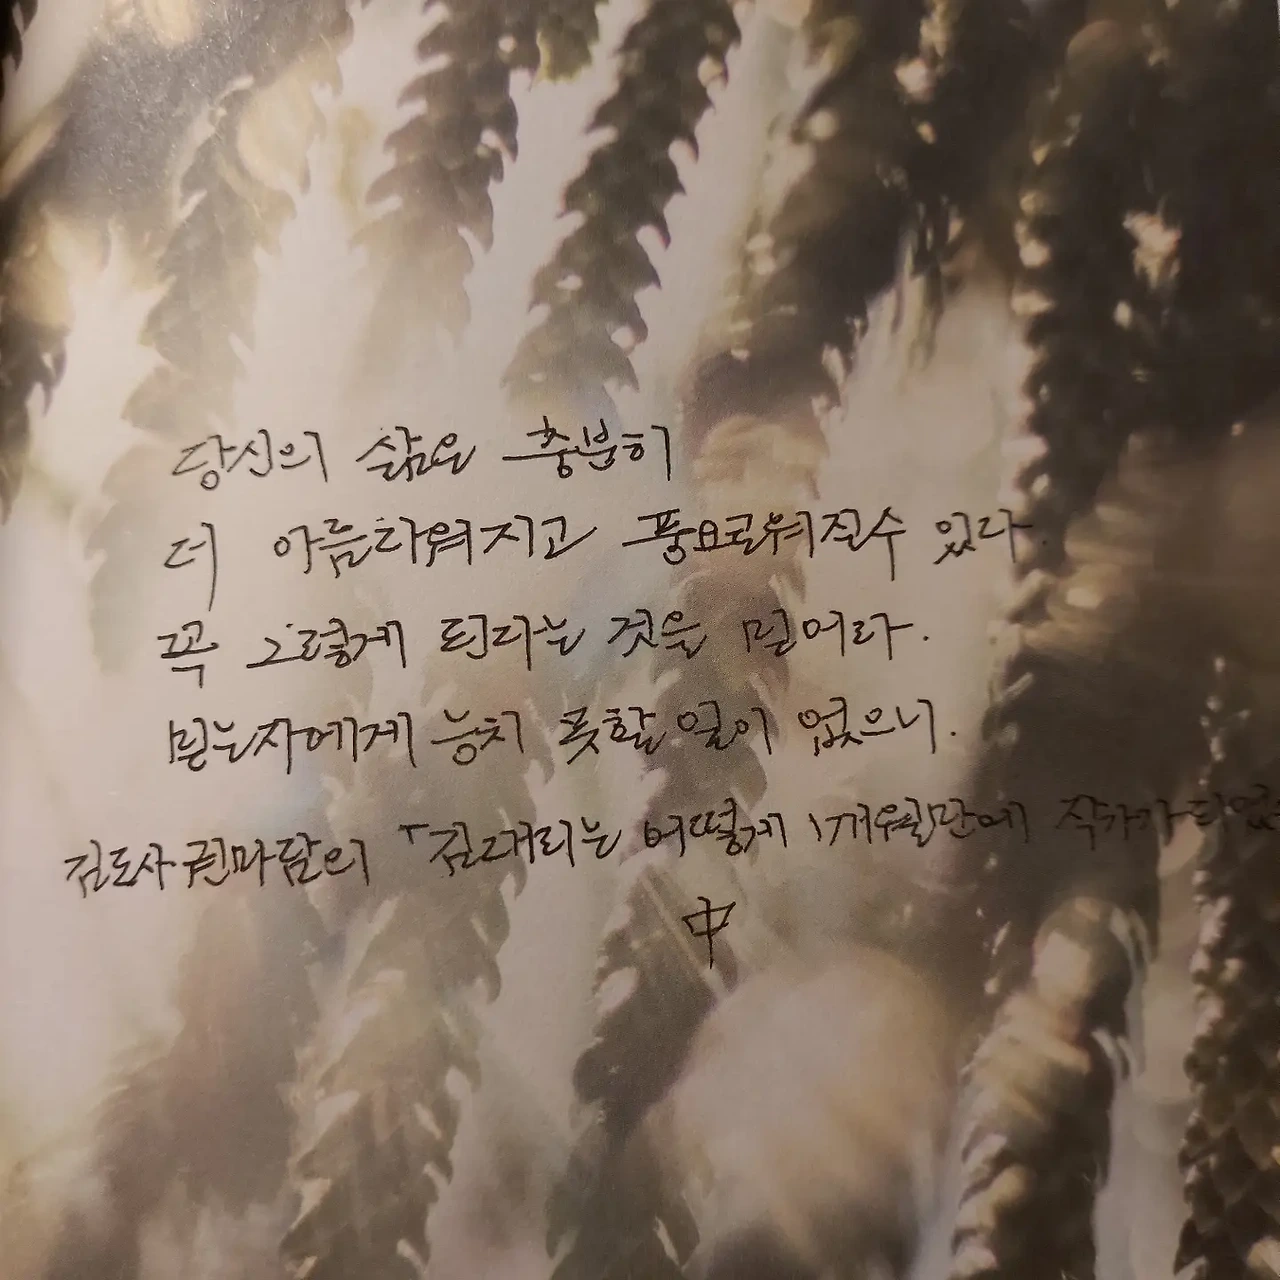 당신의 삶은 충분히
더 아름다워지고 풍요로워질수 있다.
꼭 그렇게 된다는 것을 믿어라.
믿는자에게 능치 못할 일이 없으니.
김도사 권마담의 「김대리는 어떻게 1개월만에 작가가 되었
中